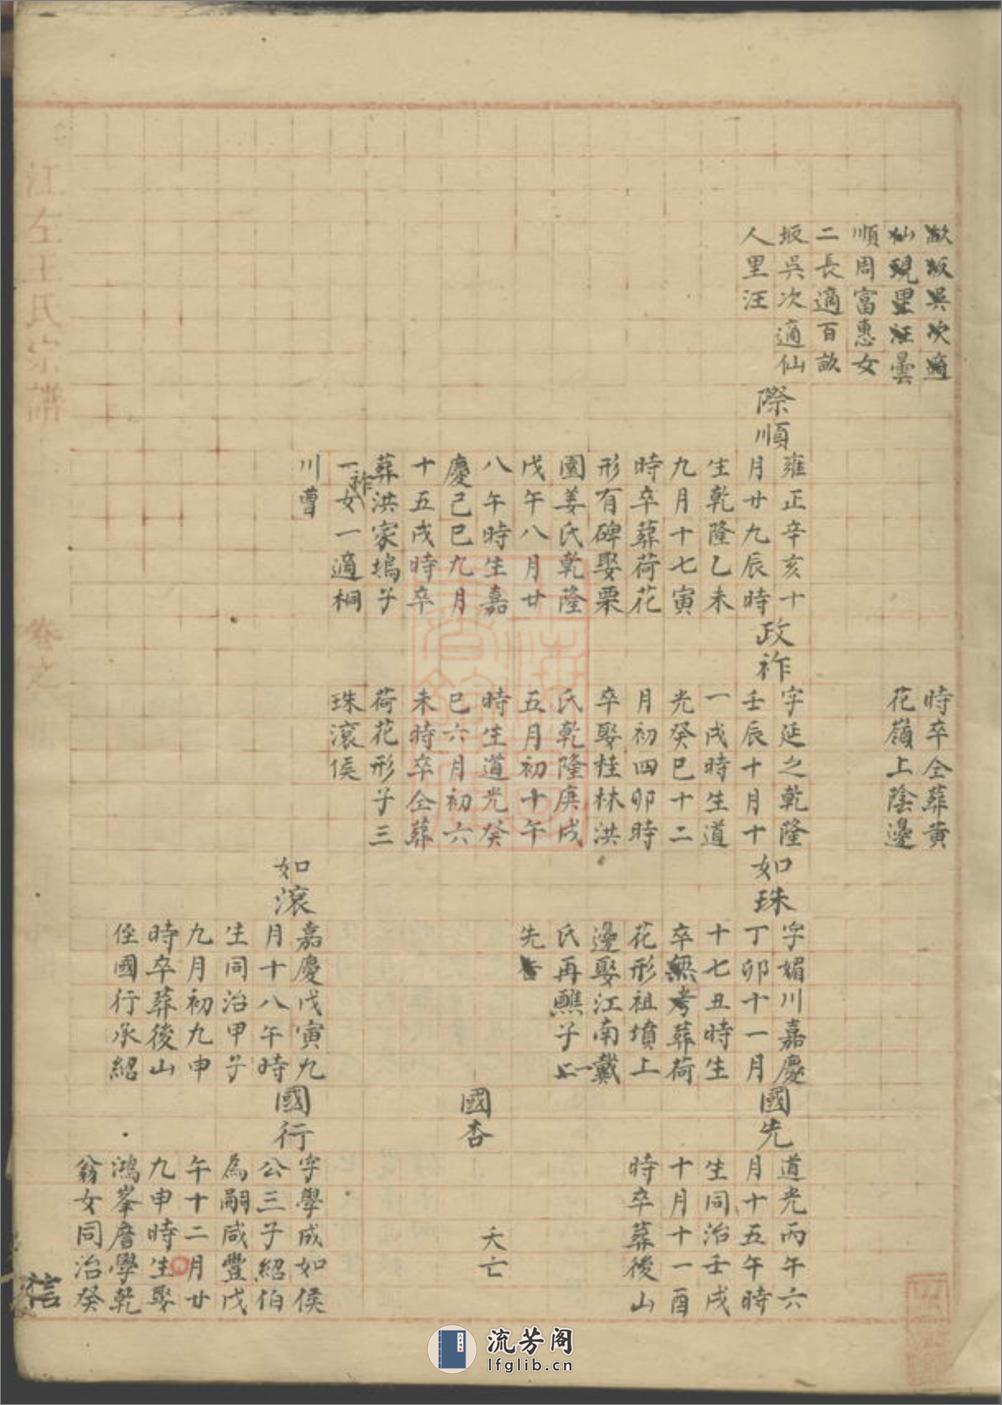 畝坂吳次適
仙現里汪曇
順周富惠女
二長適百畝
坂吳次適仙
人里汪
際順
雍正辛亥十
月廿九辰時
生乾隆乙未
九月十七寅
時卒葬荷花
形有碑娶栗
園姜氏乾隆
戊午八月廿
八午時生嘉
慶己巳九月
十五戌時卒
葬洪家塢子
一祚女一適桐
川曹
時卒仝葬黄
花嶺上陰邊
政祚
字延之乾隆
壬辰十月十
一戌時生道
光癸巳十二
月初四卯時
卒娶桂林洪
氏乾隆庚戌
五月初十午
時生道光癸
巳六月初六
未時卒仝葬
荷花形子三
珠滚侯
如珠
字媚川嘉慶
丁卯十一月
十七丑時生
卒無考葬荷
花形祖墳上
邊娶江南戴
氏再醮子一
先
如滚
嘉慶戊寅九
月十八午時
生同治甲子
九月初九申
時卒葬後山
侄國行承紹
國先
道光丙午六
月十五午時
生同治壬戌
十月十一酉
時卒葬後山
國杏
夭亡
國行
字學成如侯
公三子紹伯
為嗣咸豐戊
午十二月廿
九申時生娶
鴻峯詹學乾
翁女同治癸
江左王氏宗譜
卷之
信
流芳阁
lfglib.cn